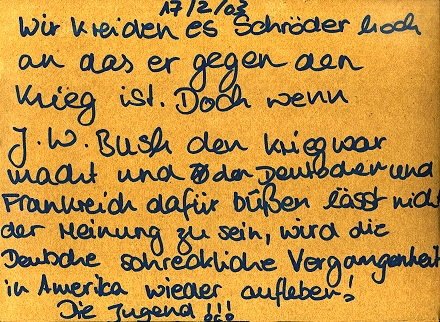 17/2/03
Wir kreiden es Schröder hoch
an das er gegen den
Krieg ist. Doch wenn
J. W. Bush den Krieg war
macht und den Deutschen und
Frankreich dafür büßen lässt nicht
der Meinung zu sein, wird die
Deutsche schreckliche Vergangenheit
in Amerika wieder aufleben!
Die Jugend!!!